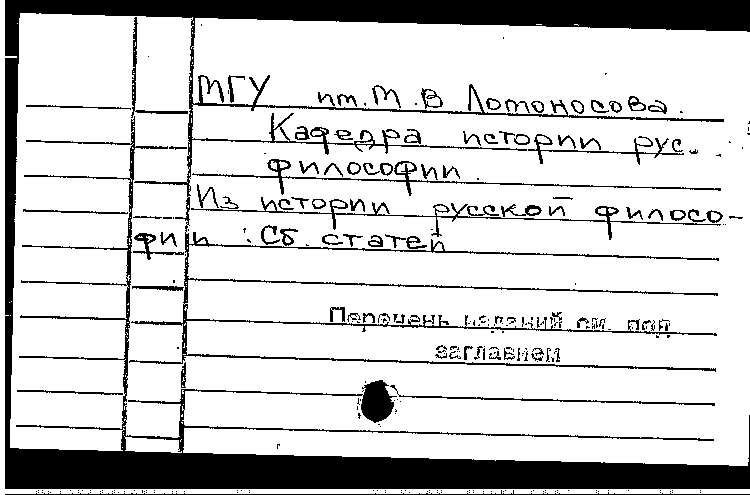 МГУ им. М.В Ломоносова.
Кафедра истории рус.
философии.
Из истории русской филосо-
фии : Сб. статей
Перечень изданий см. под
заглавием